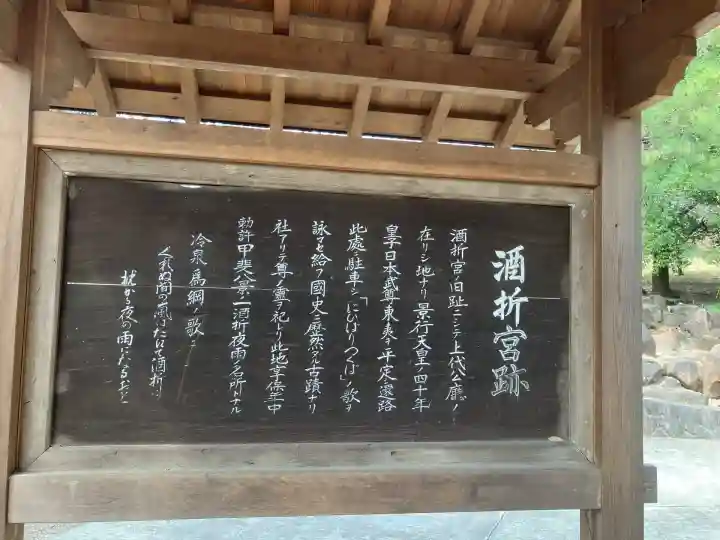 酒折宮跡
酒折宮ノ旧趾ニシテ上代公廳ノ
在リシ地ナリ景行天皇ノ四十年
皇子日本武尊東夷ヲ平定ノ還路
此處ニ駐車シ「にひばりつくば」ノ歌ヲ
詠マセ給フ國史ニ歴然タル古蹟ナリ
社アリテ尊ノ靈ヲ祀レリ此地享保年中
勅許甲斐八景ノ一酒折夜雨ノ名所トナル
冷泉為綱ノ歌ニ
くれぬ間の嵐はたえて酒折に
枕から夜の雨になるおと